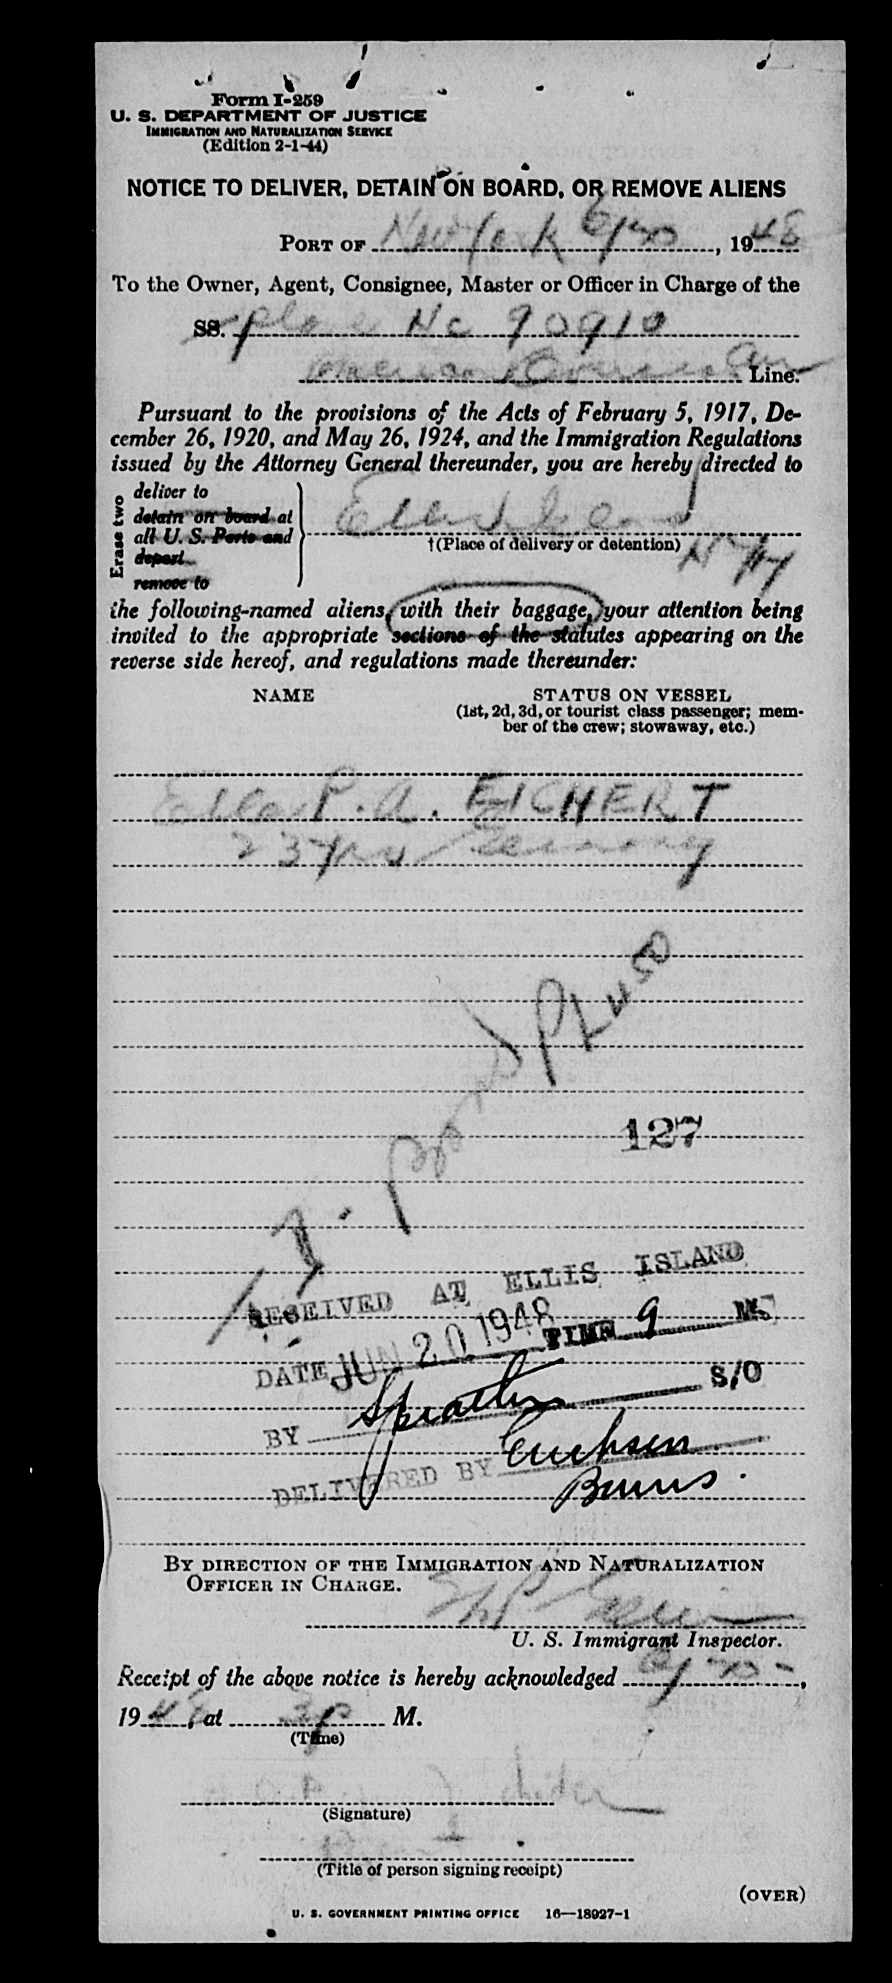 Form I-259
U. S. DEPARTMENT OF JUSTICE
IMMIGRATION AND NATURALIZATION SERVICE
(Edition 2-1-44)
NOTICE TO DELIVER, DETAIN ON BOARD, OR REMOVE ALIENS
PORT OF New York 6/20, 1948
To the Owner, Agent, Consignee, Master or Officer in Charge of the
SS. plane Nc 90910
American Overseas Air Line.
Pursuant to the provisions of the Acts of February 5, 1917, De-
cember 26, 1920, and May 26, 1924, and the Immigration Regulations
issued by the Attorney General thereunder, you are hereby directed to
Erase two
deliver to
detain on board at
all U. S. Ports and
depart
remove to
Ellis Island
†(Place of delivery or detention)
N Y H
the following-named aliens, with their baggage, your attention being
invited to the appropriate sections of the statutes appearing on the
reverse side hereof, and regulations made thereunder:
NAME
STATUS ON VESSEL
(1st, 2d, 3d, or tourist class passenger; mem-
ber of the crew; stowaway, etc.)
Ella P. A. EICHERT
23 yrs Germany
Bond
127
RECEIVED AT ELLIS ISLAND
DATE JUN 20 1948 TIME 9 M.
S/O
BY
DELIVERED BY Erichsen
Burns.
BY DIRECTION OF THE IMMIGRATION AND NATURALIZATION
OFFICER IN CHARGE.
U. S. Immigrant Inspector.
Receipt of the above notice is hereby acknowledged 6/20,
1948, at 3p M.
(Time)
(Signature)
(Title of person signing receipt)
(OVER)
U. S. GOVERNMENT PRINTING OFFICE 16—18927-1